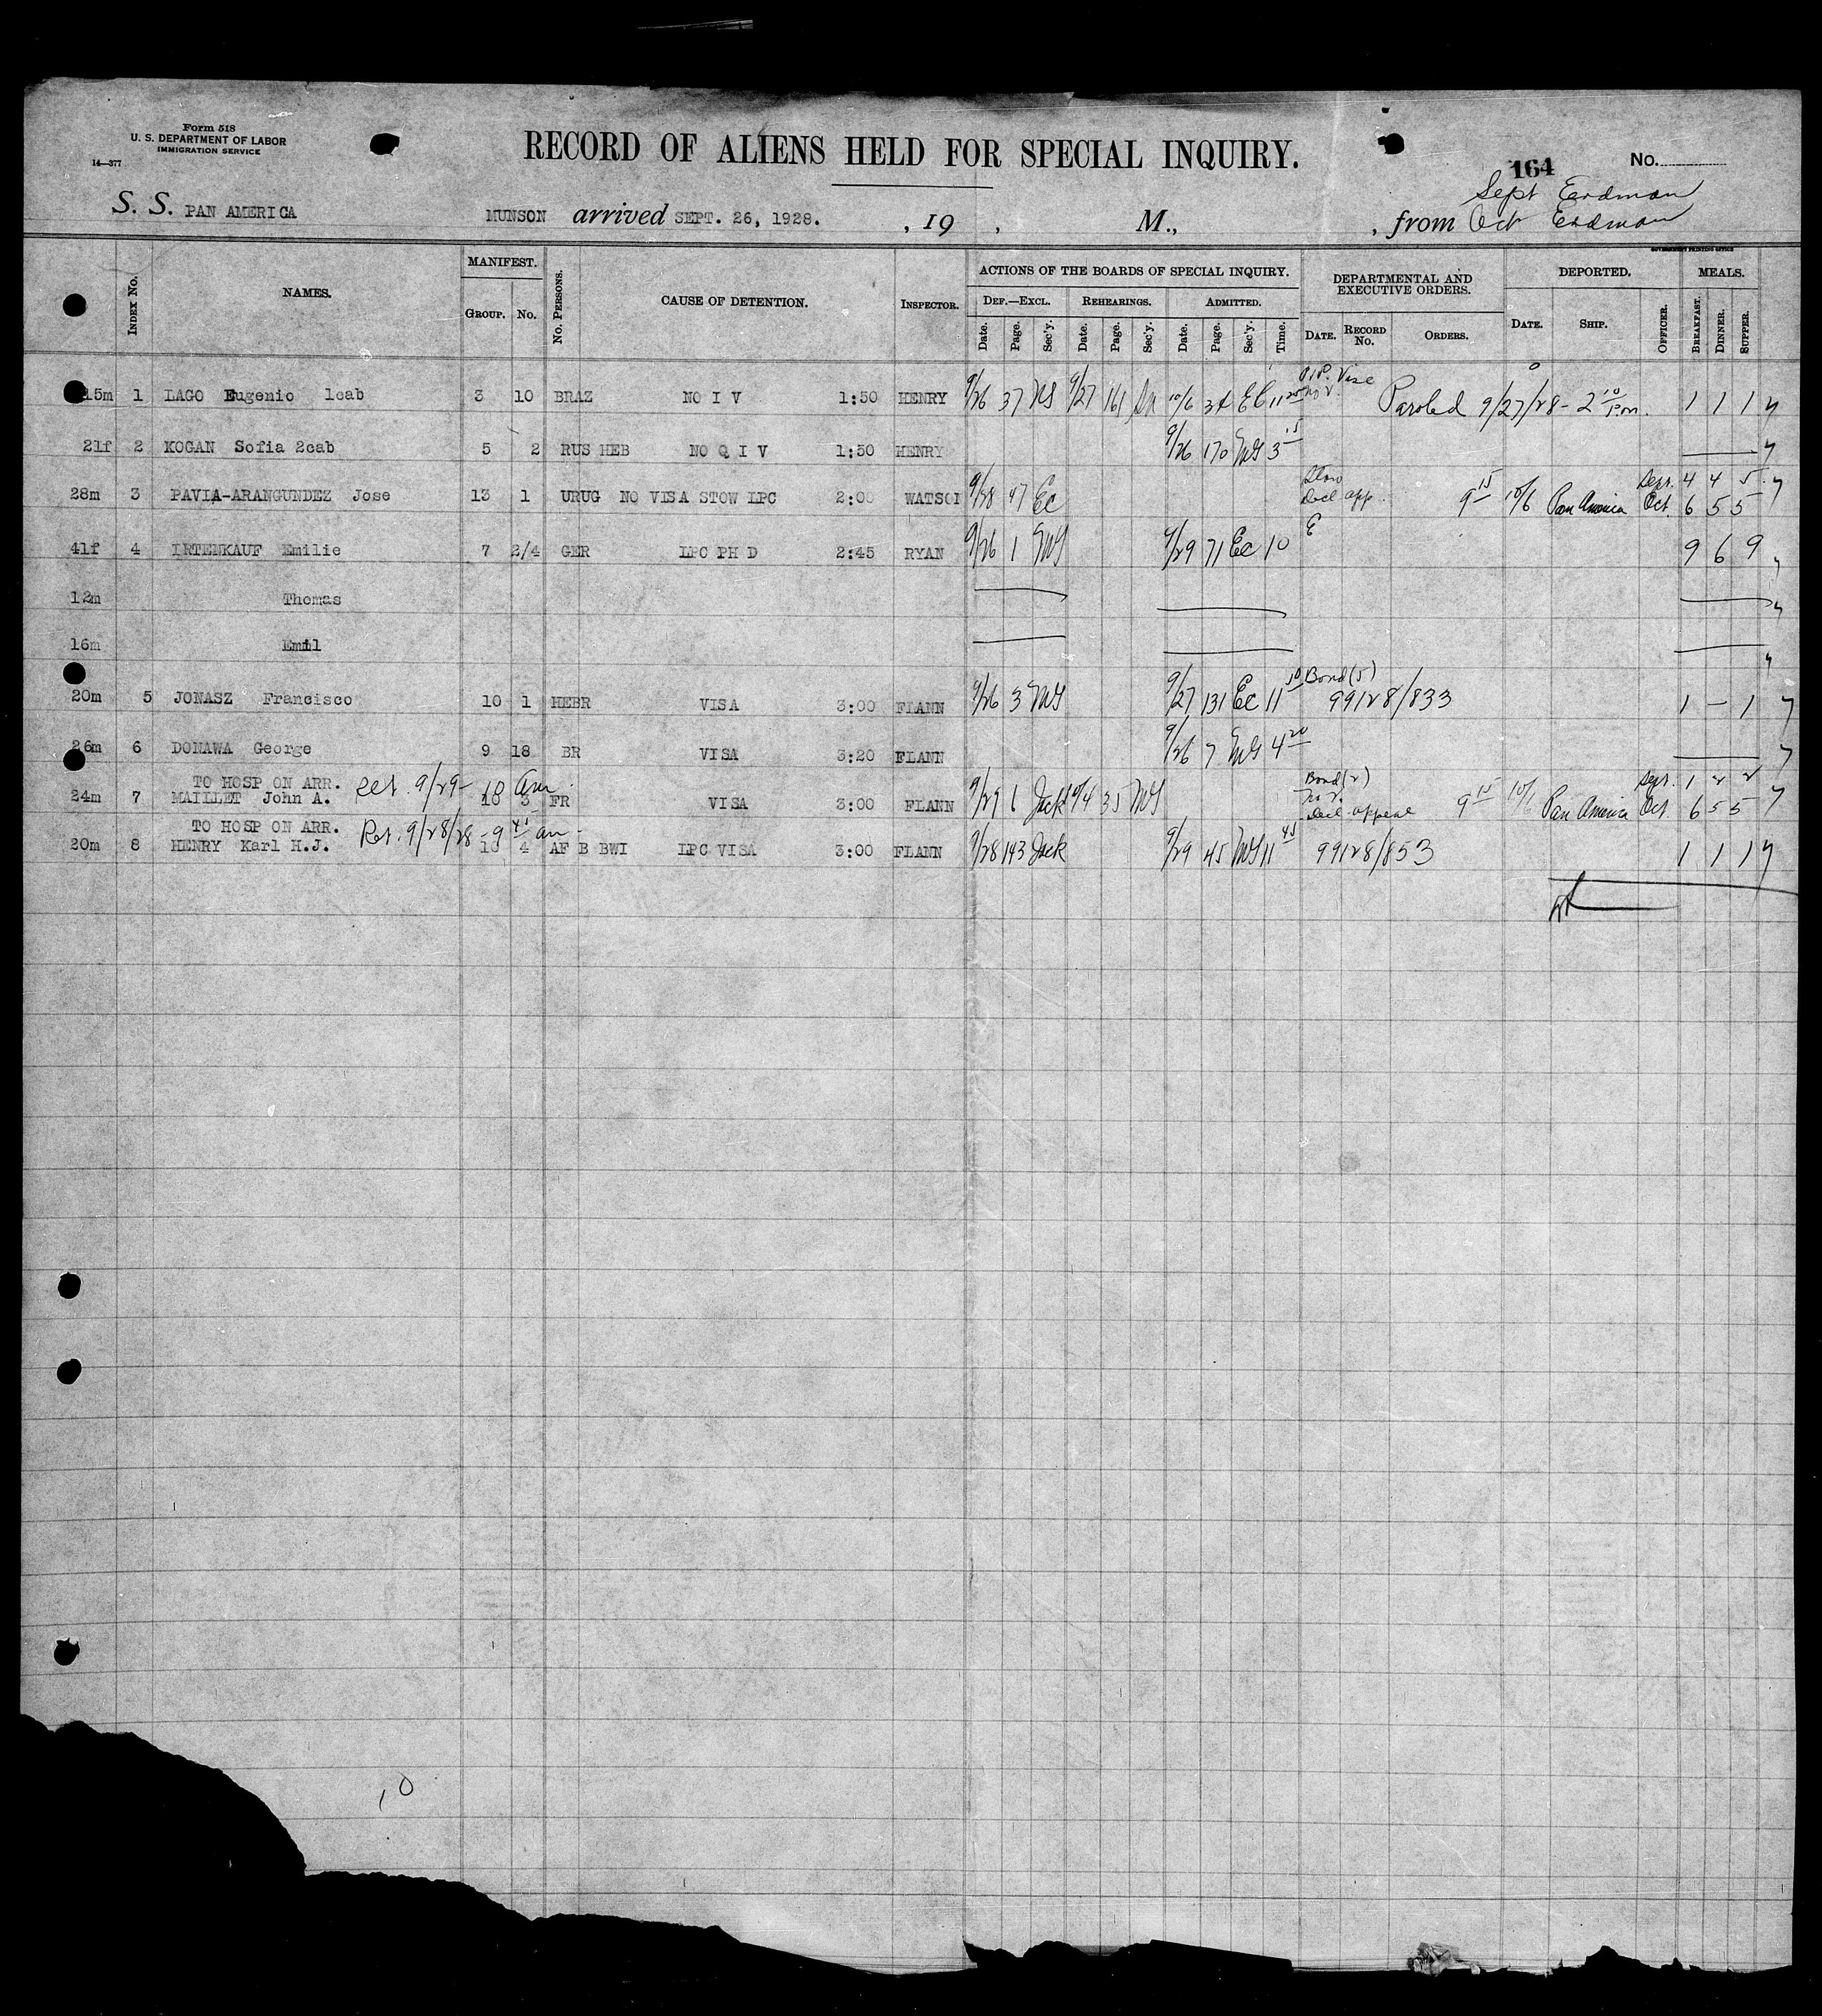 Form 518
U. S. DEPARTMENT OF LABOR
IMMIGRATION SERVICE
14—377
RECORD OF ALIENS HELD FOR SPECIAL INQUIRY.
164 No.
Sept Erdman
S. S. PAN AMERICA MUNSON arrived SEPT. 26, 1928. , 19 , M., , from Oct Erdman
GOVERNMENT PRINTING OFFICE
Index No. NAMES. MANIFEST. Group. No. No. Persons. CAUSE OF DETENTION. Inspector. ACTIONS OF THE BOARDS OF SPECIAL INQUIRY. DEPARTMENTAL AND EXECUTIVE ORDERS. DEPORTED. MEALS.
Def.—Excl. Rehearings. Admitted.
Date. Page. Sec'y. Date. Page. Sec'y. Date. Page. Sec'y. Time. Date. Record No. Orders. Date. Ship. Officer. Breakfast. Dinner. Supper.
15m 1 LAGO Eugenio 1cab 3 10 BRAZ NO I V 1:50 HENRY 9/26 37 9/27 161 10/6 EC 11 25 Paroled 9/27/28 - 2 10 Pm. 1 1 1
21f 2 KOGAN Sofia 2cab 5 2 RUS HEB NO Q I V 1:50 HENRY 9/26 170 MG 3 15
28m 3 PAVIA-ARANGUNDEZ Jose 13 1 URUG NO VISA STOW LPC 2:00 WATSO 9/28 47 EC Stow Decl. app. 9 15 10/6 Pan America Sept. 4 4 5 Oct. 6 5 5
41f 4 IRTENKAUF Emilie 7 2/4 GER LPC PH D 2:45 RYAN 9/26 1 MG 9/29 71 EC 10 E 9 6 9
12m Thomas
16m Emil
20m 5 JONASZ Francisco 10 1 HEBR VISA 3:00 FLANN 9/26 3 MG 9/27 131 EC 11 10 Bond (5) 99128/833 1 - 1
26m 6 DONAWA George 9 18 BR VISA 3:20 FLANN 9/26 7 MG 4 20
TO HOSP ON ARR. Ret. 9/29 - 10 am.
24m 7 MAILLET John A. 18 3 FR VISA 3:00 FLANN 9/29 1 Jack 10/4 35 MG Bond (2) Decl. appeal 9 15 10/6 Pan America Sept. 1 2 2 Oct. 6 5 5
TO HOSP ON ARR. Ret. 9/28/28 - 9 45 am -
20m 8 HENRY Karl H.J. 18 4 AF B BWI LPC VISA 3:00 FLANN 9/28 143 Jack 9/29 45 MG 11 45 99128/853 1 1 1
10